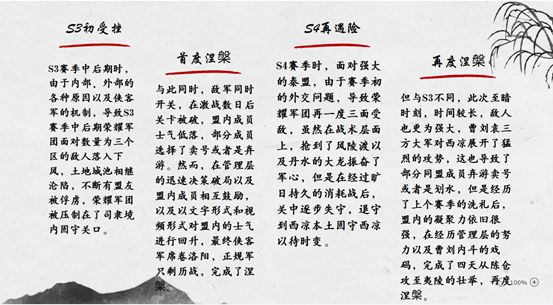 S3初受挫
S3赛季中后期时，
由于内部、外部的
各种原因以及侠客
军的机制，导致S3
赛季中后期荣耀军
团面对数量为三个
区的敌人落入下
风，土地城池相继
沦陷，不断有盟友
被俘虏，荣耀军团
被压制在了司隶境
内固守关口。
首度涅槃
与此同时，敌军同时
开关，在激战数日后
关卡被破，盟内成员
士气低落，部分成员
选择了卖号或者是弃
游。然而，在管理层
的迅速决策布局以及
盟内成员相互鼓励，
以及以文字形式和视
频形式对盟内的士气
进行回升，最终侠客
军席卷洛阳，正规军
只剩历战，完成了涅
槃。
S4再遇险
S4赛季时，面对强大
的秦盟，由于赛季初
的外交问题，导致荣
耀军团再一度三面受
敌，虽然在战术层面
上，抢到了风陵渡以
及丹水的大龙振奋了
军心，但是在经过旷
日持久的消耗战后，
关中逐步失守，退守
到西凉本土固守西凉
以待时变。
再度涅槃
但与S3不同，此次至暗
时刻，时间较长，敌人
也更为强大，曹刘袁三
方大军对西凉展开了猛
烈的攻势，这也导致了
部分同盟成员弃游卖号
或者是划水，但是经历
了上个赛季的洗礼后，
盟内的凝聚力依旧很
强，在经历管理层的努
力以及曹刘内斗的戏
码，完成了四天从陈仓
攻至夷陵的壮举，再度
涅槃。
100%